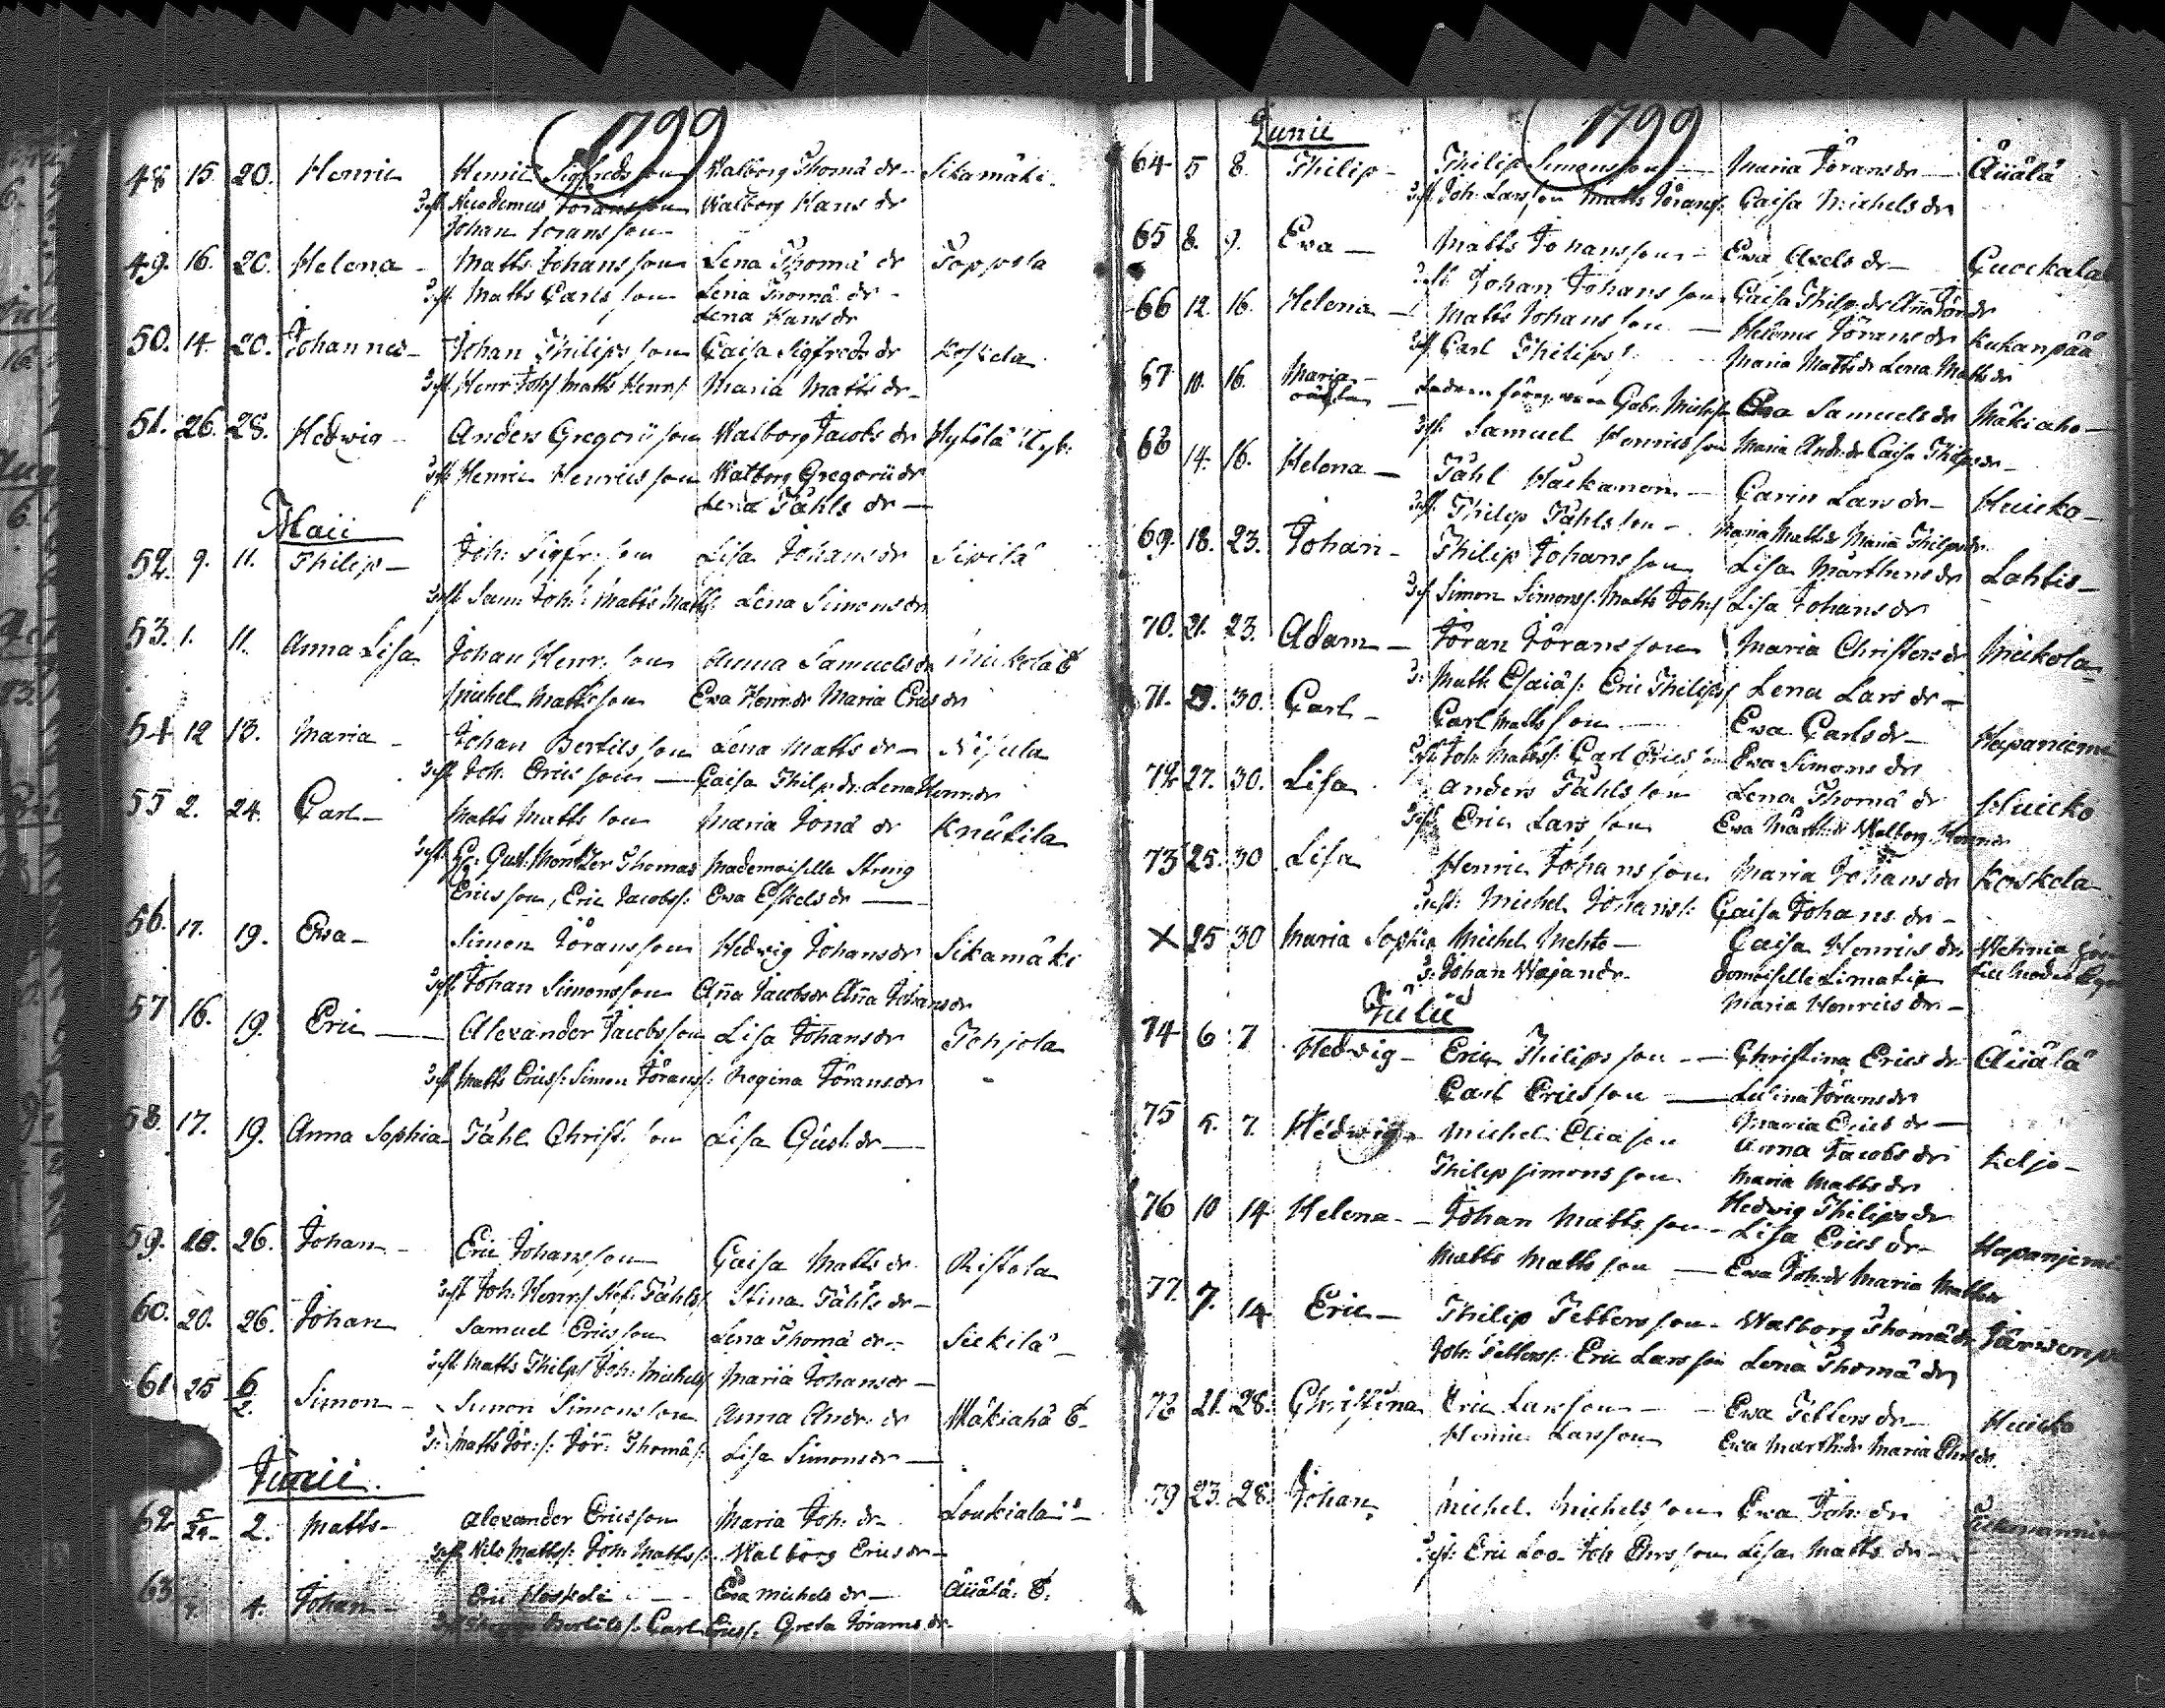 1799
48 15. 20. Henric Henric Sigfreds son Walborg Thomæ dr - Sikamäki.
Test. Nicodemus Göransson Walborg Hans dr
Johan Göransson
49. 16. 20. Helena - Matts Johansson Lena Thomæ dr Toppola
Test. Matts Carlsson Lena Thomæ dr -
Lena Hans dr
50. 14. 20. Johannes - Johan Philipsson Caisa Sigfreds dr Koskela
Test. Henr Johs Matts Henrs. Maria Matts dr -
51. 26. 28. Hedwig - Anders Gregorii son Walborg Jacobs dr Hytölä
Test. Henric Henricsson Walborg Gregorii dr
Lena Påhls dr —
Maii
52. 9. 11. Philip - Joh: Sigfr: son Lisa Johans dr Sipilä
Test. Sam: Joh: Matts Matts: Lena Simons dr
53. 1. 11. Anna Lisa Johan Henr: son Anna Samuels dr Mickola
Michel Mattsson Ewa Henr: dr Maria Erics dr
54 12 13. Maria - Johan Bertilsson Lena Matts dr - Nijula
Test. Joh. Ericsson — Caisa Philp: dr Lena Henr: dr
55 2. 24. Carl - Matts Mattsson Maria Jonæ dr Knuutila
Test. Gust. Thomas Mademoiselle Streng
Ericsson, Eric Jacobs: Ewa Eskels dr —
56. 17. 19. Ewa - Simon Göransson Hedwig Johans dr Sikamäki
Test. Johan Simonsson Anna Jacobs dr Anna Johans dr
57 16. 19. Eric — Alexander Jacobsson Lisa Johans dr Pohjola
Test. Matts Erics: Simon Görans: Regina Görans dr
58. 17. 19. Anna Sophia Påhl Christ. son Lisa Gust dr —
59. 20. 26. Johan - Eric Johansson Caisa Matts dr. Ristola
Test. Joh: Henrs Påhls Stina Påhls dr -
60. 20. 26. Johan Samuel Ericsson Lena Thomæ dr - Sickilä -
Test. Matts Philps Joh: Michels Maria Johans dr -
61 25 6/2. Simon - Simon Simonsson Anna Andr: dr Mäkiaho
T: Matts Gör: s: Gör: Thomæ s: Lisa Simons dr —
Junii.
62 5/24 2. Matts - Alexander Ericsson Maria Joh: dr - Loukiala
Test. Nils Matts: Joh: Matts: Walborg Erics dr -
63. 4. Johan - Eric Ewa Michels dr - Äijälä
Bertils: Carl Erics: Greta Görans dr -
1799
Junii
64 5 8. Philip - Philip Simonsson — Maria Görans dr — Äijälä
Test. Joh. Larsson Matts Görans: Caisa Michels dr
65 8. 9. Ewa - Matts Johansson - Ewa Axels dr - Cuockala
Test. Johan Johansson Caisa Philp: dr Anna Gör: dr
66 12. 16. Helena - Matts Johansson — Helena Görans dr Kukanpää
Test. Carl Philips: Maria Matts dr Lena Matts dr
67 10. 16. Maria - Ewa Samuels dr Mäkiaho -
Test. Samuel Henricsson Maria Andr: dr Caisa Philps dr -
68 14. 16. Helena - Påhl Häckanen - Carin Lars dr - Huicko -
Test. Philip Påhlsson - Maria Matts dr Maria Philps dr
69. 18. 23. Johan - Philip Johansson Lisa Mårthens dr Lahtis -
Test. Simon Simons: Matts Johs Lisa Johans dr
70. 21. 23. Adam - Göran Göransson Maria Christers dr Mickola
T: Matts Esaiæ s: Eric Philips Lena Lars dr -
71. 30. Carl - Carl Mattsson — Ewa Carls dr - Hapaniemi
Test. Joh: Matts: Carl Ericsson Ewa Simons dr
72 27. 30. Lisa Anders Påhlsson Lena Thomæ dr Huicko
Test. Eric Larsson Ewa Märth: dr Walborg Henr: dr
73 25. 30 Lisa Henric Johansson Maria Johans dr Koskela
Test: Michel Johans: Caisa Johans dr -
X 25 30 Maria Sophia Michel Mehto - Caisa Henrics dr
T: Johan Wajandr. Domoiselle Limatia
Maria Henrics dr -
Julii
74 6 7 Hedwig - Eric Philipsson - Christina Erics dr Äijälä
Carl Ericsson — Görans dr
Maria Erics dr -
75 5. 7. Hedwig - Michel Eliasson Anna Jacobs dr Keljo -
Philip Simonsson Maria Matts dr
Hedwig Philips dr
76 10 14 Helena - Johan Mattsson - Lisa Erics dr - Hapanjemi
Matts Mattsson — Ewa Joh: dr Maria Matts dr
77. 7. 14 Eric - Philip Pettersson - Walborg Thomæ dr
Joh: Petters: Eric Larsson Lena Thomæ dr
78 21. 28. Christina Eric Larsson - Ewa Petters dr - Huicko
Henric Larsson Ewa Marth: dr Maria
79 23. 28. Johan, Michel Michelsson Ewa Joh: dr
Test: Eric Joh Lisa Matts dr -